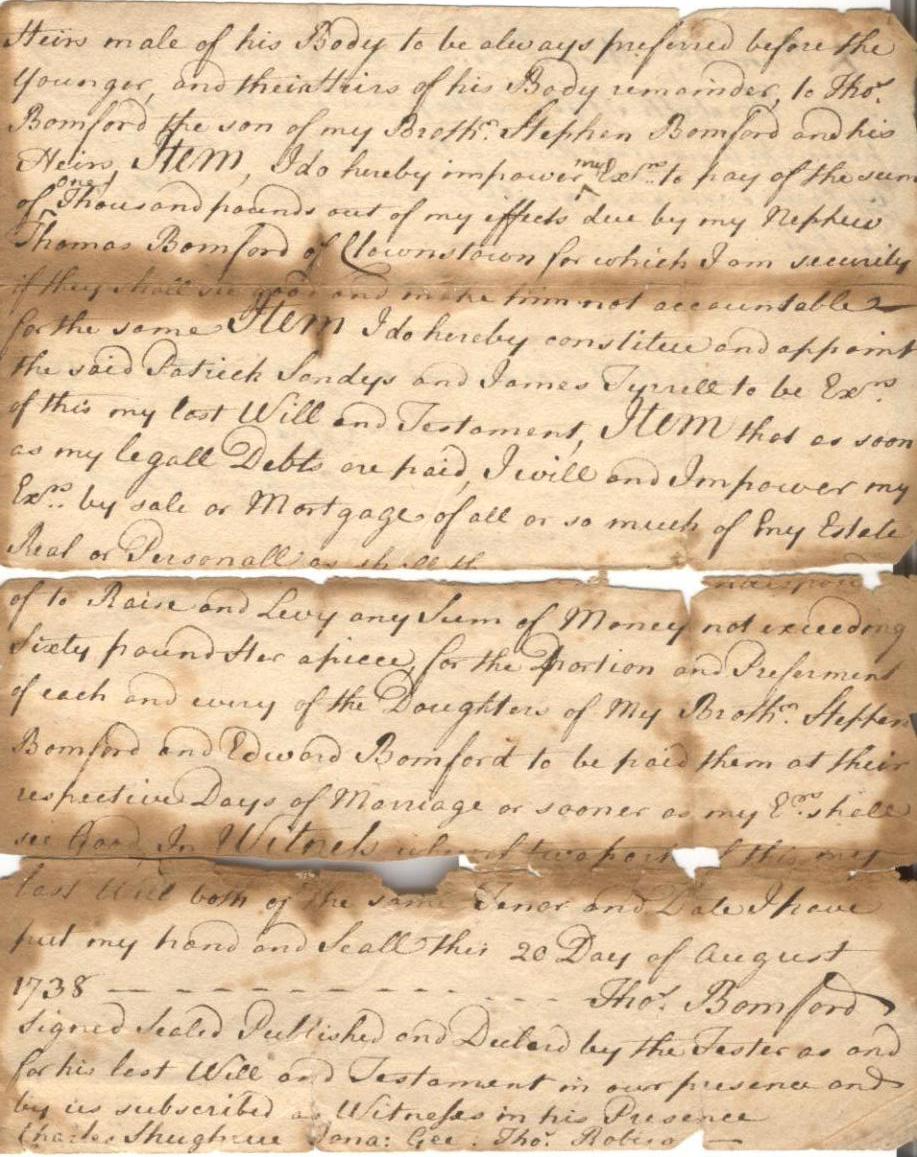 Heirs male of his Body to be always preferred before the
younger, and their Heirs of his Body remainder, to Thos.
Bomford the son of my Brothr. Stephen Bomford and his
Heirs, Item, I do hereby impower my Exrs. to pay of the sum
of one Thousand pounds out of my effects due by my Nephew
Thomas Bomford of Clownstown for which I am security
if they shall see good and make him not accountable
for the same Item I do hereby constitue and appoint
the said Patrick Sandys and James Tyrrell to be Exrs.
of this my last Will and Testament, Item that as soon
as my legall Debts are paid, I will and Impower my
Exrs. by sale or Mortgage of all or so much of my Estate
Real or Personall as shall
of to Raise and Levy any Sum of Money not exceeding
Sixty pound ster apiece, for the Portion and Preferment
of each and every of the Daughters of My Brothr. Stephen
Bomford and Edward Bomford to be paid them at their
respective Days of Marriage or sooner as my Ers. shall
see Good In Witness two part this my
last Will both of the same Tenor and Date I have
put my hand and Seall this 20 Day of August
1738 — — — — — — — — Thos. Bomford
Signed Sealed Published and Declard by the Tester as and
for his last Will and Testament in our presence and
by us subscribed as Witnesses in his Presence
Charles Shughrue Jona: Gee: Thos.